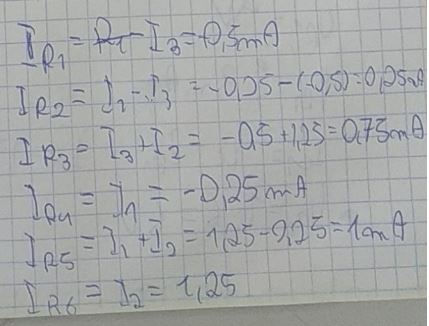 I_R1 = I_3 = -0,5mA
I_R2 = I_1 - I_3 = -0,25 - (-0,5) = 0,25mA
I_R3 = I_3 + I_2 = -0,5 + 1,25 = 0,75mA
I_R4 = I_1 = -0,25mA
I_R5 = I_1 + I_2 = 1,25 - 0,25 = 1mA
I_R6 = I_2 = 1,25